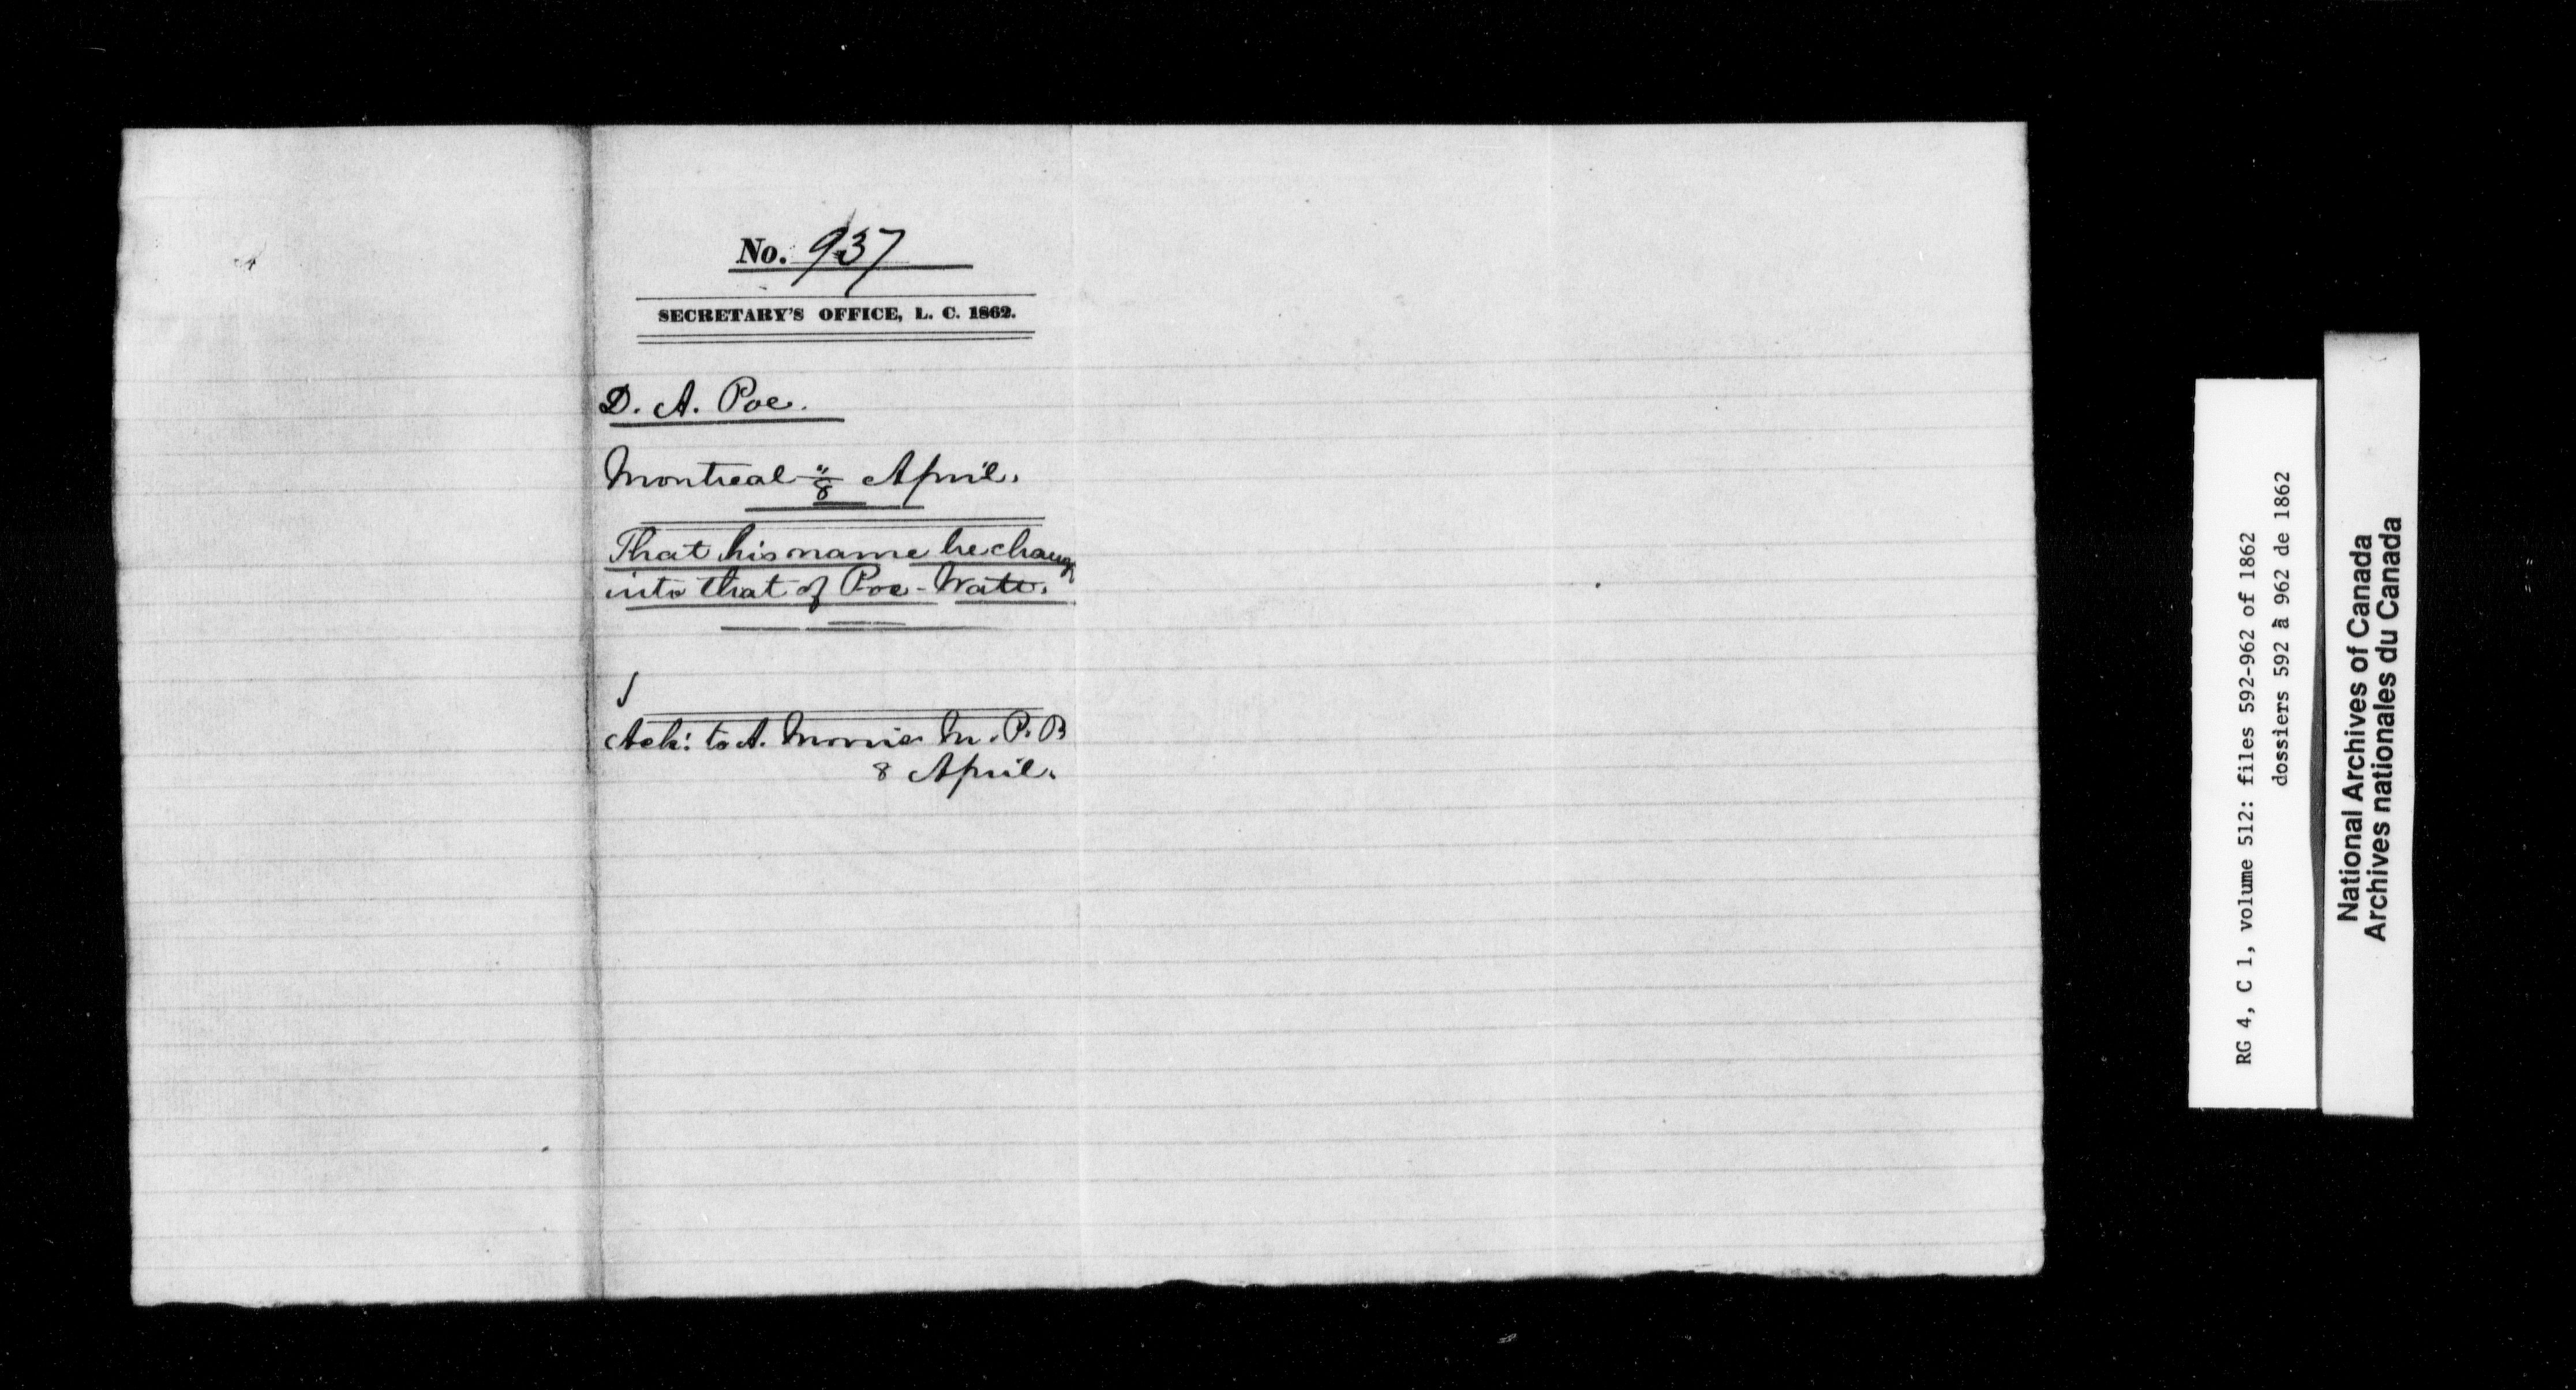 No. 937
SECRETARY'S OFFICE, L. C. 1862.
D. A. Poe.
Montreal " April.
8
That his name be chang
into that of Poe-Watt.
Ack: to A. Morris M. P. P
8 April.
RG 4, C 1, volume 512: files 592-962 of 1862
dossiers 592 à 962 de 1862
National Archives of Canada
Archives nationales du Canada